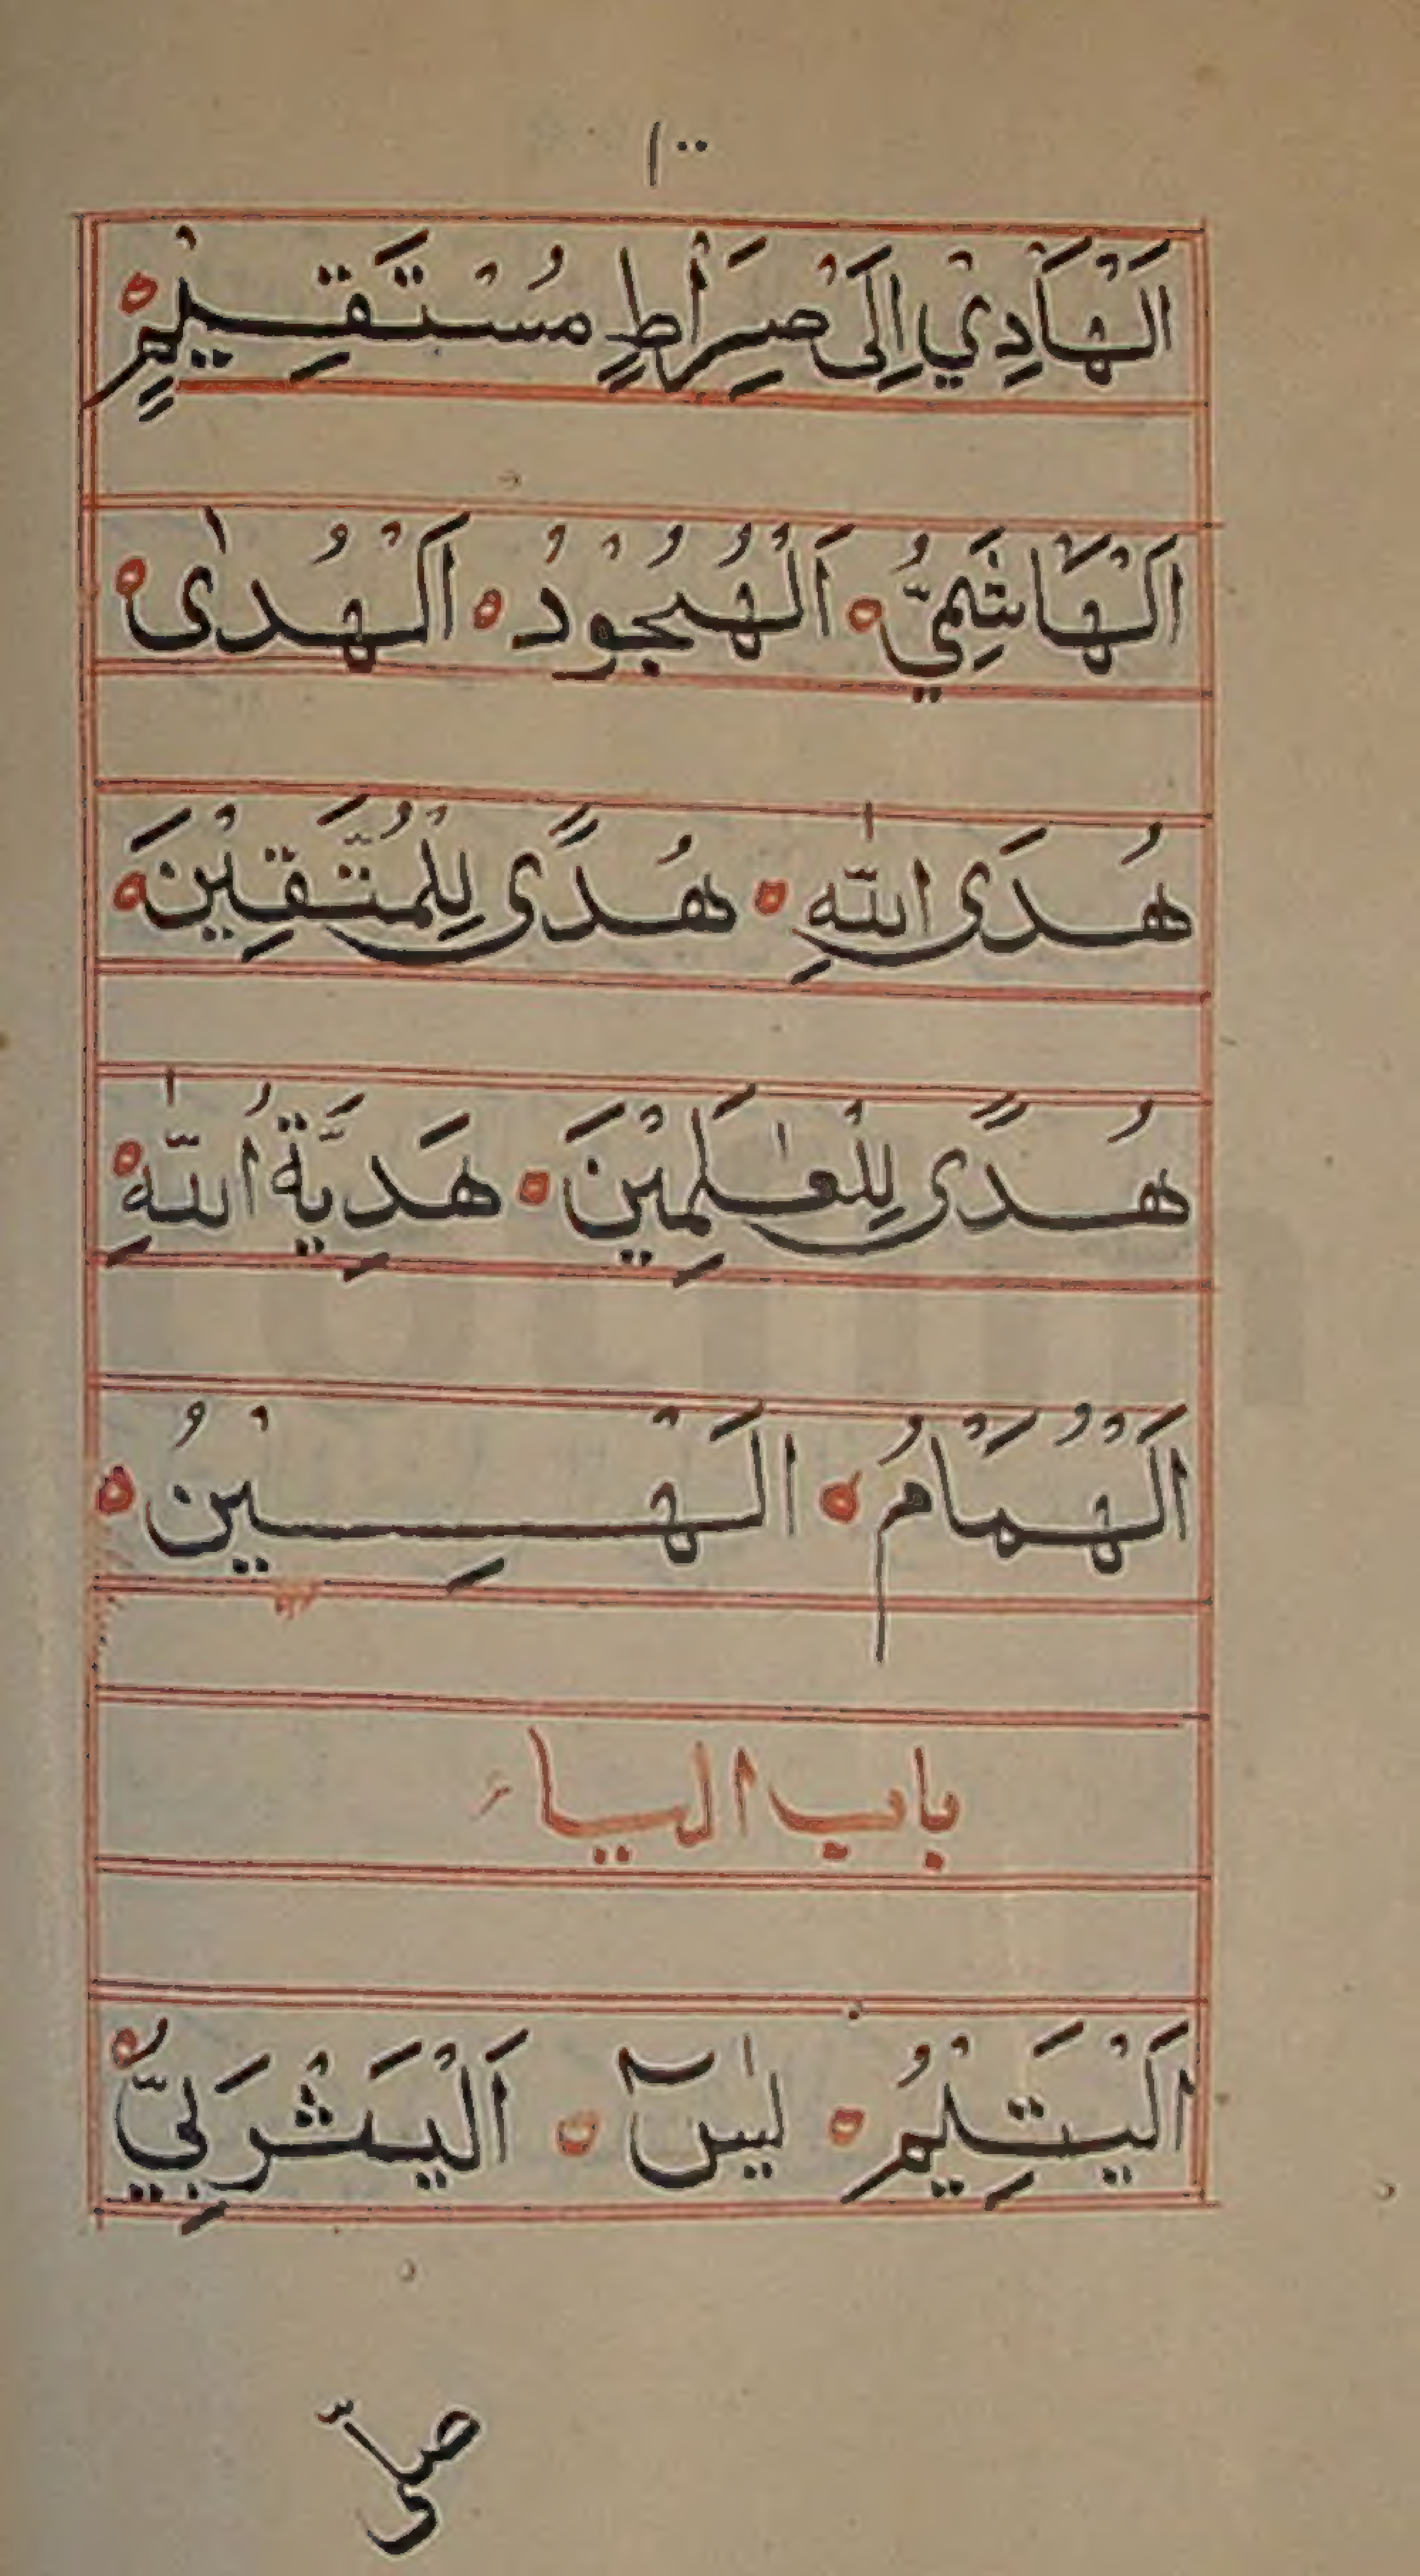 ١٠٠
اَلْهَادِيْ اِلَى صِرَاطٍ مُسْتَقِيْمٍ ه
اَلْهَاشِمِيُّ ه اَلْهُجُوْدُ ه اَلْهُدٰى ه
هُدَى اللّٰهِ ه هُدًى لِلْمُتَّقِيْنَ ه
هُدًى لِلْعٰلَمِيْنَ ه هَدِيَّةُ اللّٰهِ ه
اَلْهُمَامُ ه اَلْهَيِيْنُ ه
باب الياء
اَلْيَتِيْمُ ه يٰسٓ ه اَلْيَثْرَبِيُّ ه
صلى